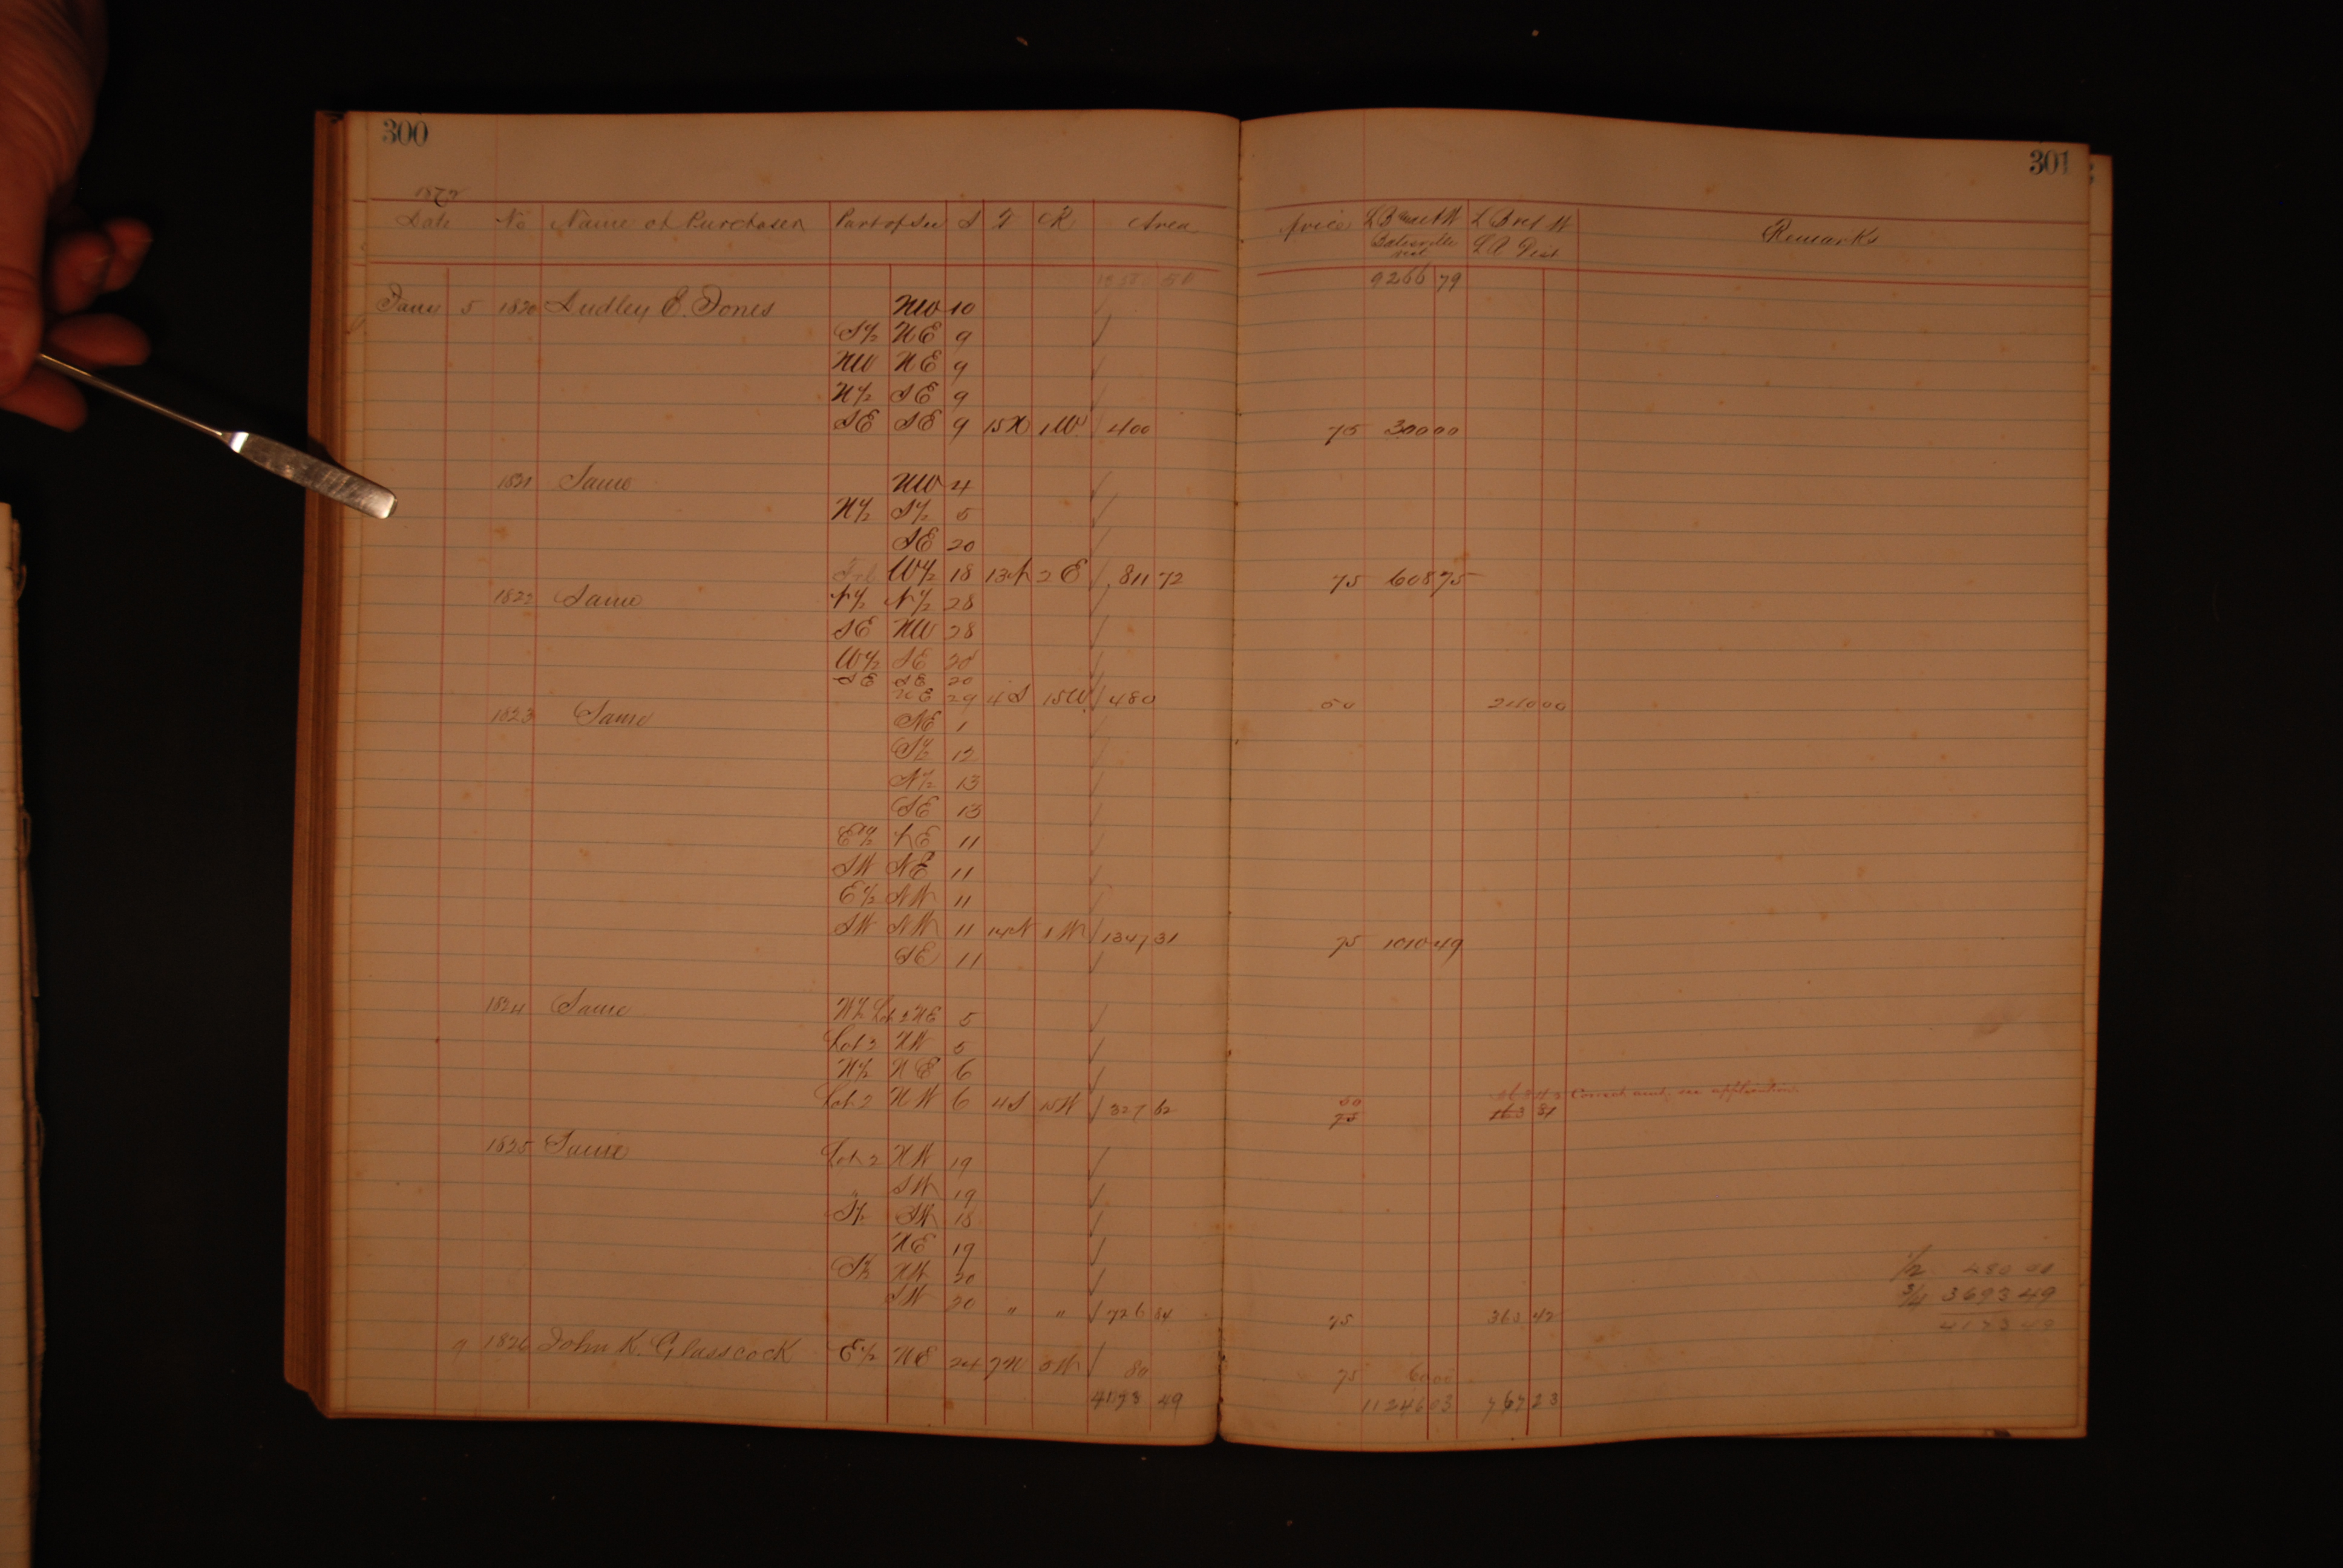 300
301
Date No Name of Purchaser Part of Sec S T R Area Price L B Remarks
Batesville L R Dist
9266 79
Jany 5 1820 Dudley E. Jones NW 10
S½ NE 9
NW NE 9
N½ SE 9
SE SE 9 15N 1W 400 75 300 00
1821 Same NW 4
N½ S½ 5
SE 20
Frl W½ 18 13N 2E 811 72 75 608 75
1822 Same N½ N½ 28
SE NW 28
W½ SE 20
SE SE 20
NE 29 4S 15W 480 50 240 00
1823 Same NE 1
S½ 12
N½ 13
SE 13
E½ NE 11
SW NE 11
E½ NW 11
SW NW 11 14N 1W 1347 31 75 1010 49
SE 11
1824 Same W½ Lot 2 NE 5
Lot 2 NW 5
N½ NE 6
Lot 2 NW 6 4S 15W 327 62 50 Correct amt, see application
75 163 81
1825 Same Lot 2 NW 19
" SW 19
S½ SW 18
NE 19
S½ NW 20 ½ 480 00
SW 20 " " 726 84 75 363 42 ¾ 3693 49
4173 49
9 1826 John K. Glasscock E½ NE 24 7N 3W 80 75 60 00
4173 49 11246 03 767 23